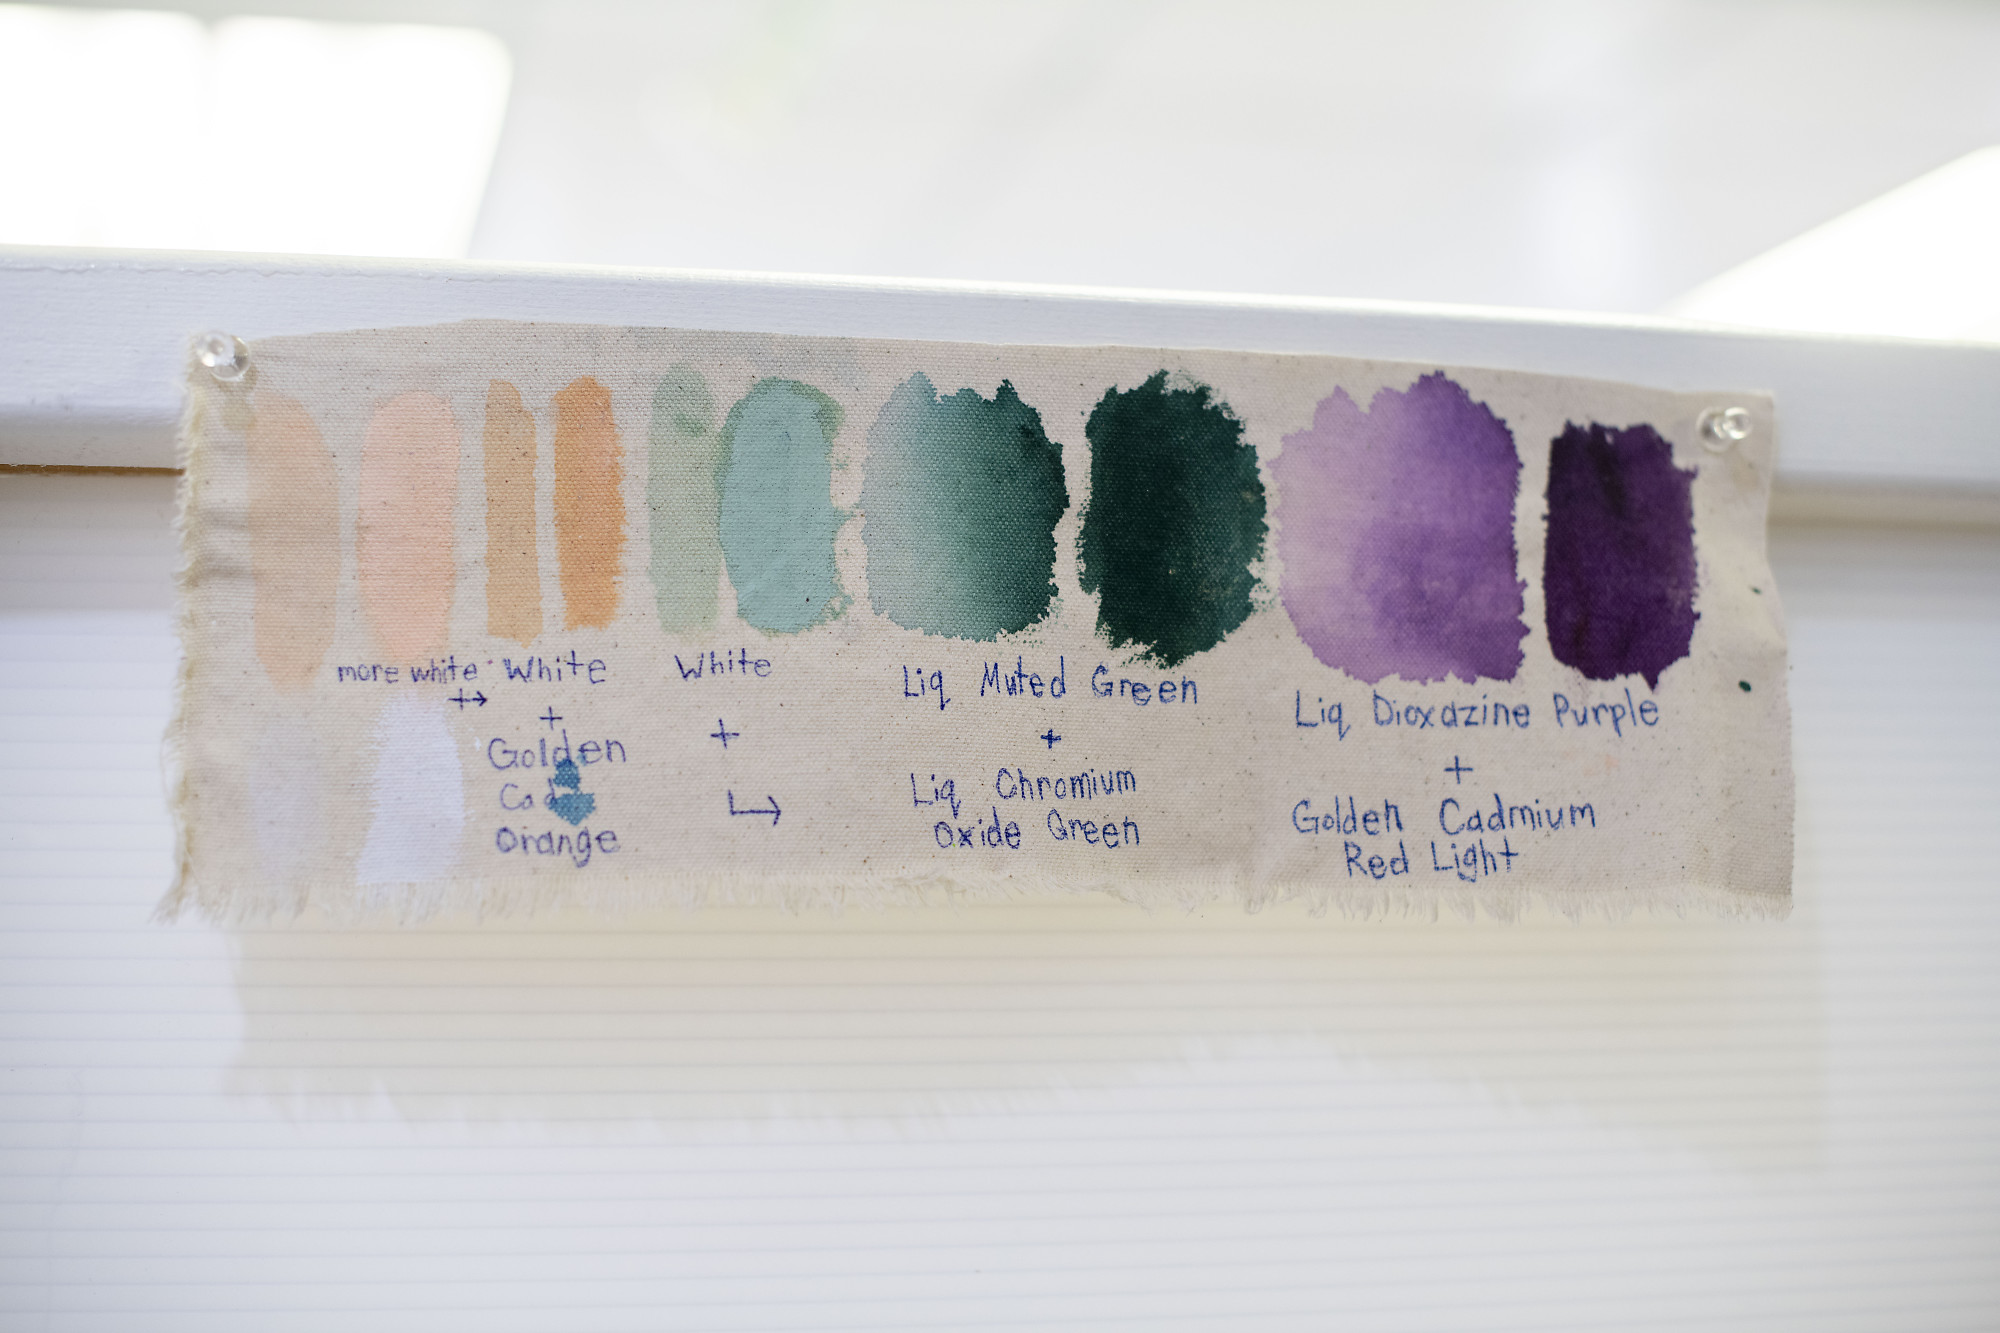 more white
+→
White
+
Golden
Cad
Orange
White
+
↳
Liq Muted Green
+
Liq Chromium
Oxide Green
Liq Dioxazine Purple
+
Golden Cadmium
Red Light